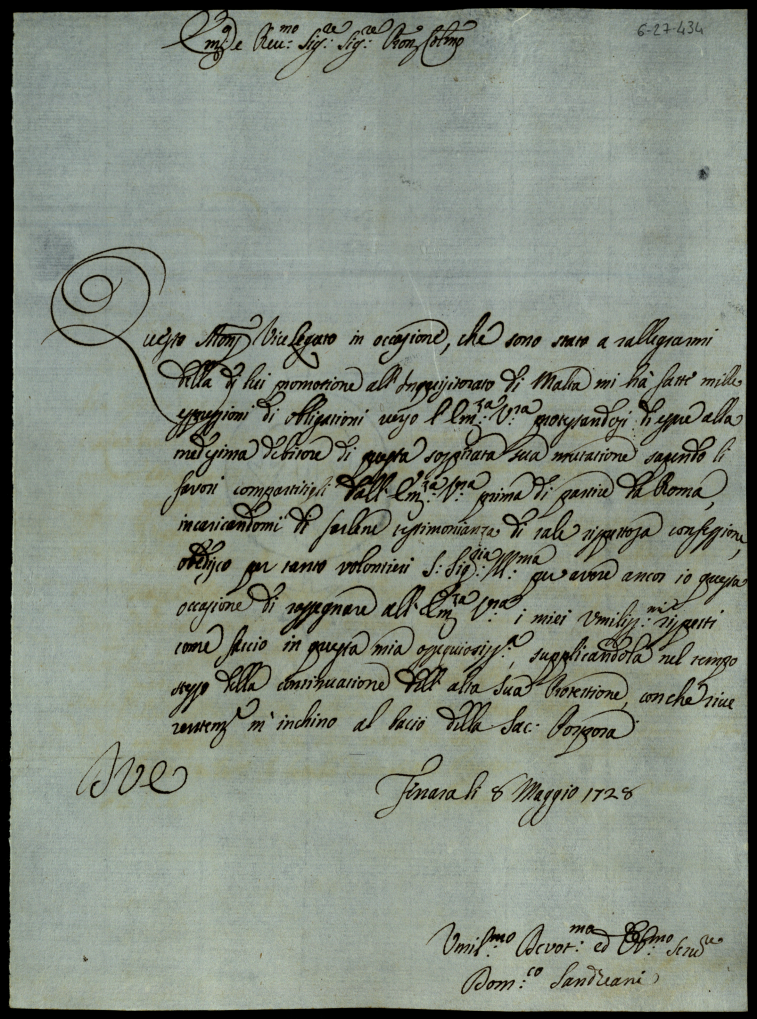 Em.o e Reu.mo Sig.re Sig.re Pron Col.mo
6-27-434
Questo Mons.r Vice Legato in occasione, che sono stato a rallegrarmi
della di lui promotione all'Inquisitorato di Malta mi hà fatte mille
espressioni di obligationi verso l'Em.za V.ra protestandosi d'essere alla
medesima debitore di questa sospirata sua mutatione sapendo li
favori compartitigli dall'Em.za V.ra prima di partire da Roma,
incaricandomi di farlene testimonianza di tale rispettosa confessione,
obedisco per tanto volontieri S: Sig.ria Ill.ma per avere ancor io questa
occasione di rassegnare all'Em.za V.ra i miei Vmiliss.mi rispetti
come faccio in questa mia ossequiosiss.a, supplicandola nel tempo
stesso della continuatione dell'alta sua Protettione, con che rive
rentem.e m'inchino al bacio della Sac: Porpora
DVE
Ferrara li 8 Maggio 1728
Vmil.mo Devot.mo ed Obl.mo Seru.re
Dom.co Sandreani